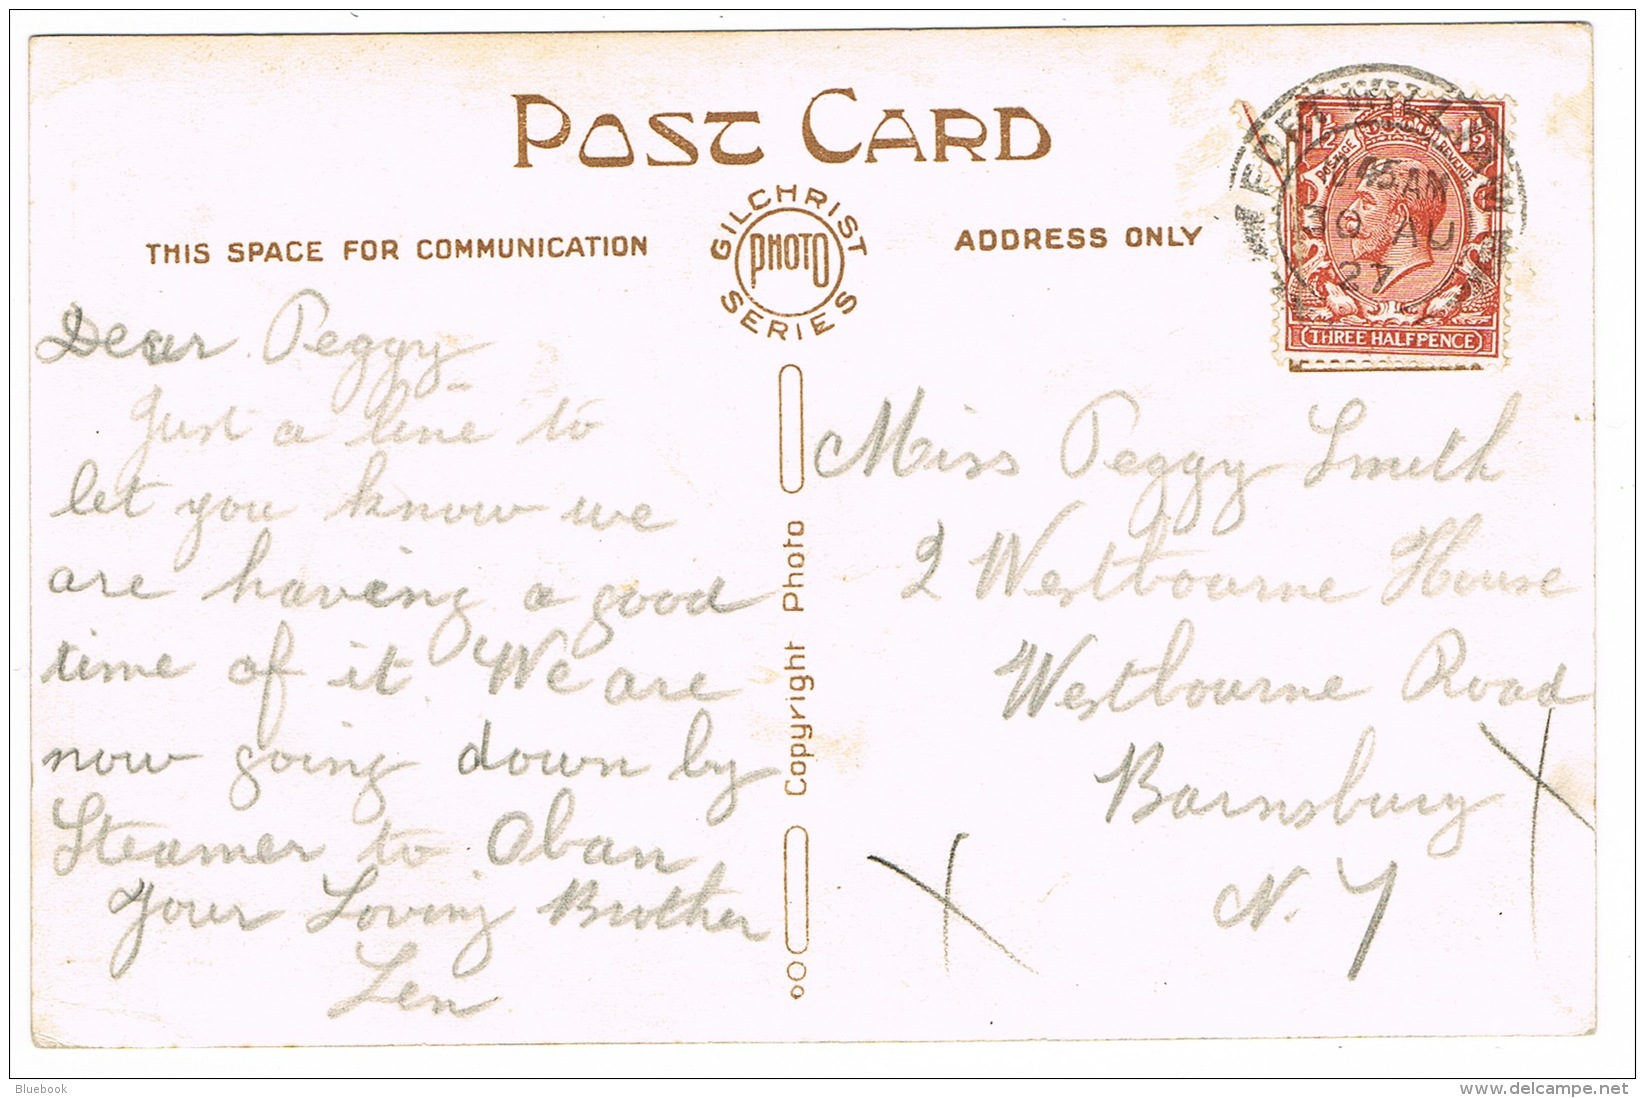 POST CARD
THIS SPACE FOR COMMUNICATION
GILCHRIST
PHOTO
SERIES
ADDRESS ONLY
1/2 1/2
POSTAGE REVENUE
45 AM
30 AU
27
THREE HALFPENCE
Dear Peggy
Just a line to
let you know we
are having a good
time of it. We are
now going down by
Steamer to Oban,
Your Loving Brother
Len
Copyright Photo
Miss Peggy Smith
2 Westbourne House
Westbourne Road
Barnsbury
N. 7
Bluebook
delcampe.net